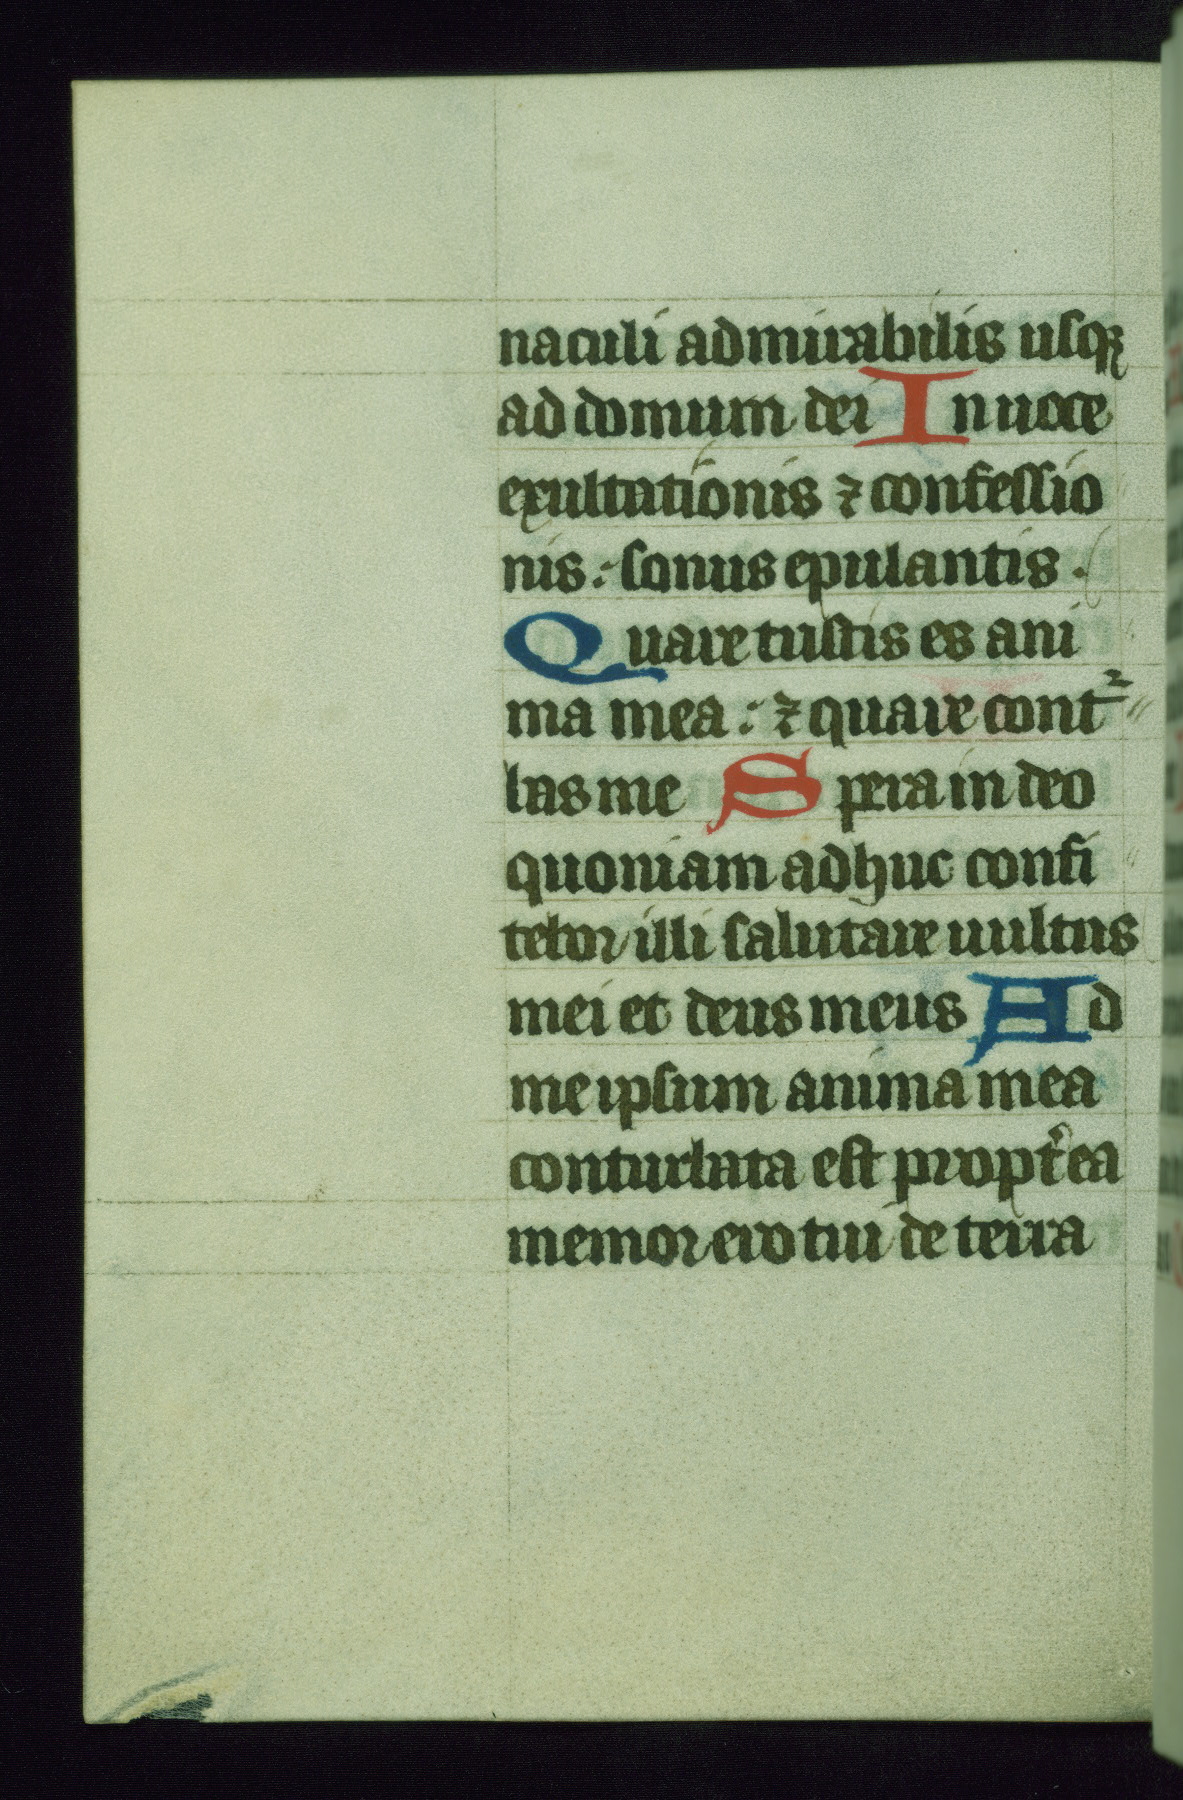 naculi admirabilis usqꝫ
ad domum dei In uoce
exultationis ⁊ confessio
nis : sonus epulantis .
Quare tristis es ani
ma mea : ⁊ quare cont²
bas me Spera in deo
quoniam adhuc confi
tebor illi salutare uultus
mei et deus meus Ad
me ipsum anima mea
conturbata est propt̾ea
memor ero tui de terra